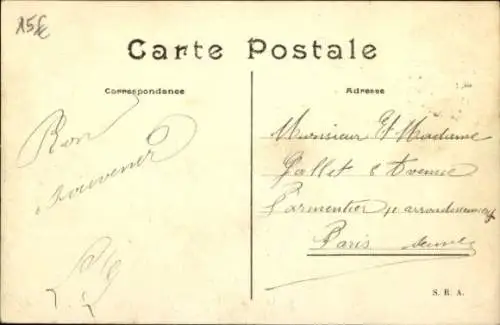 15€
Carte Postale
Correspondance
Adresse
Bon
Souvenir
Monsieur Et Madame
Gallet 8 Avenue
Parmentier 11 arrondissement
Paris
S. R. A.